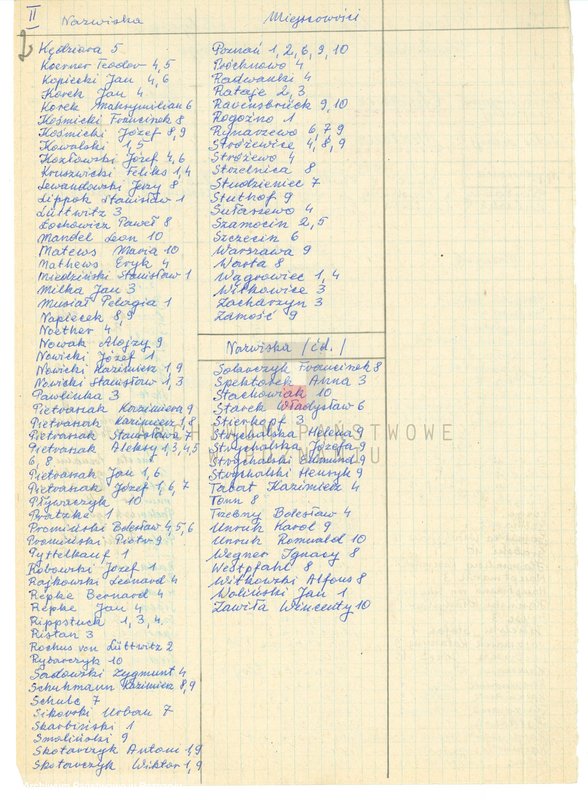 II
Nazwiska
Kędziora 5
Koerner Teodor 4,5
Kopiecki Jan 4,6
Korek Jan 4
Korek Maksymilian 6
Koźmicki Franciszek 8
Kośmicki Józef 8,9
Kowalski 1,5
Kozłowski Józef 4,6
Kruszwicki Feliks 1,4
Lewandowski Jerzy 8
Lippok Stanisław 1
Lüttwitz 3
Łochowicz Paweł 8
Mandel Leon 10
Matews Maria 10
Mathews Eryk 4
Miedziński Stanisław 1
Milka Jan 3
Musiał Pelagia 1
Naplecek 8,9
Noether 4
Nowak Alojzy 9
Nowicki Józef 1
Nowicki Kazimierz 1,9
Nowicki Stanisław 1,3
Pawlinka 3
Pietrasiak Kazimiera 9
Pietrasiak Kazimierz 1,8
Pietrasiak Stanisława 7
Pietrasiak Aleksy 1,3,4,5
6,8
Pietrasiak Jan 1,6
Pietrasiak Józef 1,6,7
Pływaczyk 10
Pratzke 1
Promiński Bolesław 4,5,6
Promiński Piotr 9
Pyttelkauf 1
Robowski Józef 1
Rajkowski Leonard 4
Repke Bernard 4
Repke Jan 4
Rippstuck 1,3,4
Ristan 3
Rochus von Lüttwitz 2
Rybarczyk 10
Sadowski Zygmunt 4
Schuhmann Kazimierz 8,9
Schulc 7
Sikorski Urban 7
Skarbiński 1
Smoliński 9
Skotarczyk Antoni 1,9
Skotarczyk Wiktor 1,9
Miejscowości
Poznań 1,2,6,9,10
Próchnowo 4
Radwanki 4
Rataje 2,3
Ravensbrück 9,10
Rogoźno 1
Rynarzewo 6,7 9
Stróżewice 4,8,9
Stróżewo 4
Strzelnica 8
Studzieniec 7
Stuthof 9
Sułaszewo 4
Szamocin 2,5
Szczecin 6
Warszawa 9
Warta 8
Wągrowiec 1,4
Witkowice 3
Zacharzyn 3
Zamość 9
Nazwiska /cd./
Solarczyk Franciszek 8
Spektorek Anna 3
Stachowiak 10
Starek Władysław 6
Stierkopf 3
Strychalska Helena 9
Strychalska Józefa 9
Strychalski Edmund 9
Strychalski Henryk 9
Tabat Kazimierz 4
Tonn 8
Trzebny Bolesław 4
Unruh Karol 9
Unruh Romuald 10
Wegner Ignacy 8
Westpfahl 8
Witkowski Alfons 8
Woliński Jan 1
Zawiła Wincenty 10